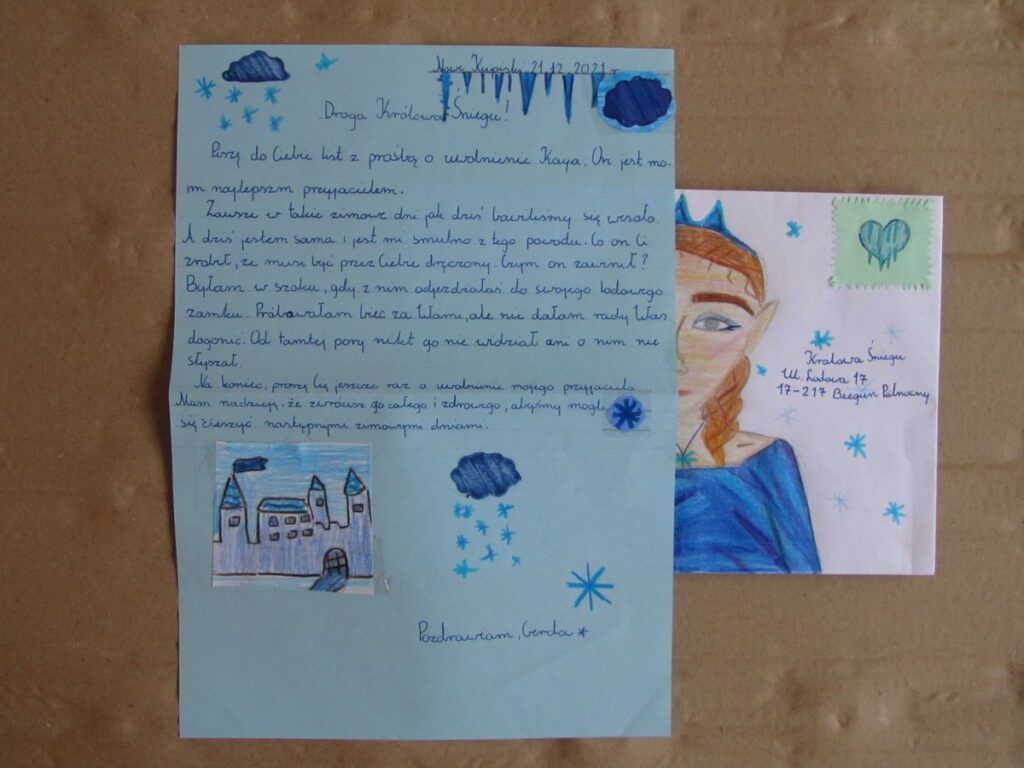 Nowe Kupiski 21.12.2021 r.
Droga Królowo Śniegu!
Piszę do Ciebie list z prośbą o uwolnienie Kaya. On jest mo-
im najlepszm przyjacielem.
Zawsze w takie zimowe dni jak dziś bawiliśmy się wesoło.
A dziś jestem sama i jest mi smutno z tego powodu. Co on Ci
zrobił, że musi być przez Ciebie dręczony. Czym on zawinił?
Byłam w szoku, gdy z nim odjeżdżałaś do swojego lodowego
zamku. Próbowałam biec za Wami, ale nie dałam rady Was
dogonić. Od tamtej pory nikt go nie widział ani o nim nie
słyszał.
Na koniec, proszę Cię jeszcze raz o uwolnienie mojego przyjaciela.
Mam nadzieję, że zwrócisz go całego i zdrowego, abyśmy mogli
się cieszyć następnymi zimowymi dniami.
Pozdrawiam, Gerda
Królowa Śniegu
Ul. Lodowa 17
17-217 Biegun Północny